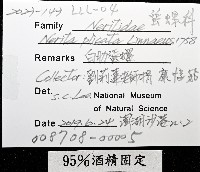 2029-149 LLL-04
Family Neritidae 蜑螺科
Nerita plicata Linnaeus, 1758
Remarks 白肋蜑螺
Collector 劉莉蓮
Det. S.C. Lee National Museum
of Natural Science
Date 2019.6.24 澎湖沙港
008708-00005
95%酒精固定